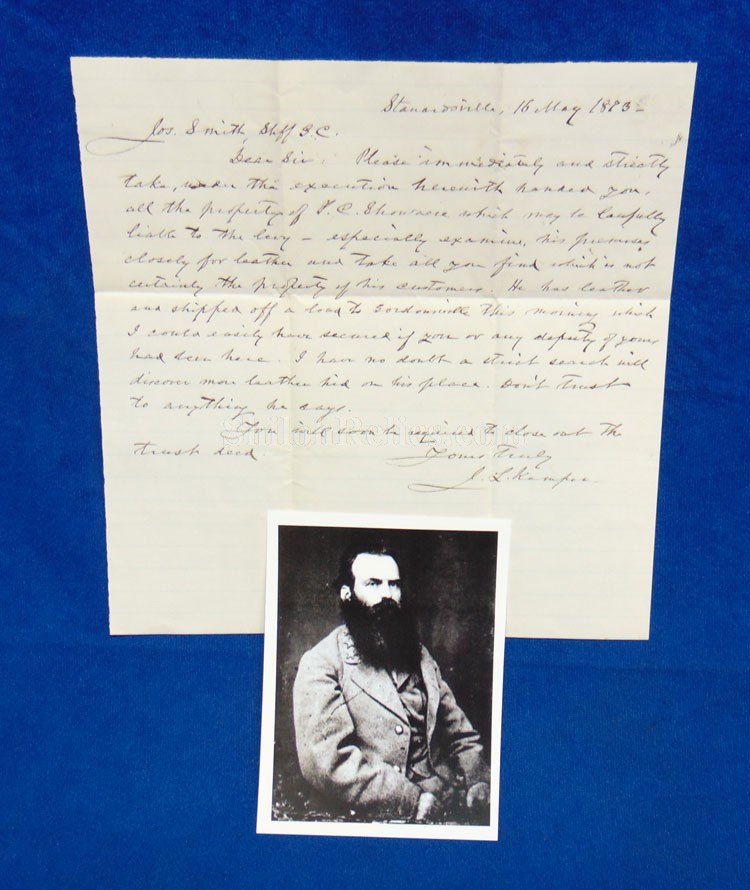 Stanardsville, 16 May 1873-
Jos. Smith, Shff G.C.
Dear Sir: Please immediately and strictly
take, under the execution herewith handed you,
all the property of P. C. which may be lawfully
liable to the levy - especially examine, his premises
closely for leather and take all you find which is not
certainly the property of his customers. He has leather
and shipped off a load to Gordonsville this morning which
I could easily have secured if you or any deputy of yours
had been here. I have no doubt a strict search will
discover more leather hid on his place. Don't trust
to anything he says.
You will soon be required to close out the
trust deed
Yours Truly
J. L. Kemper